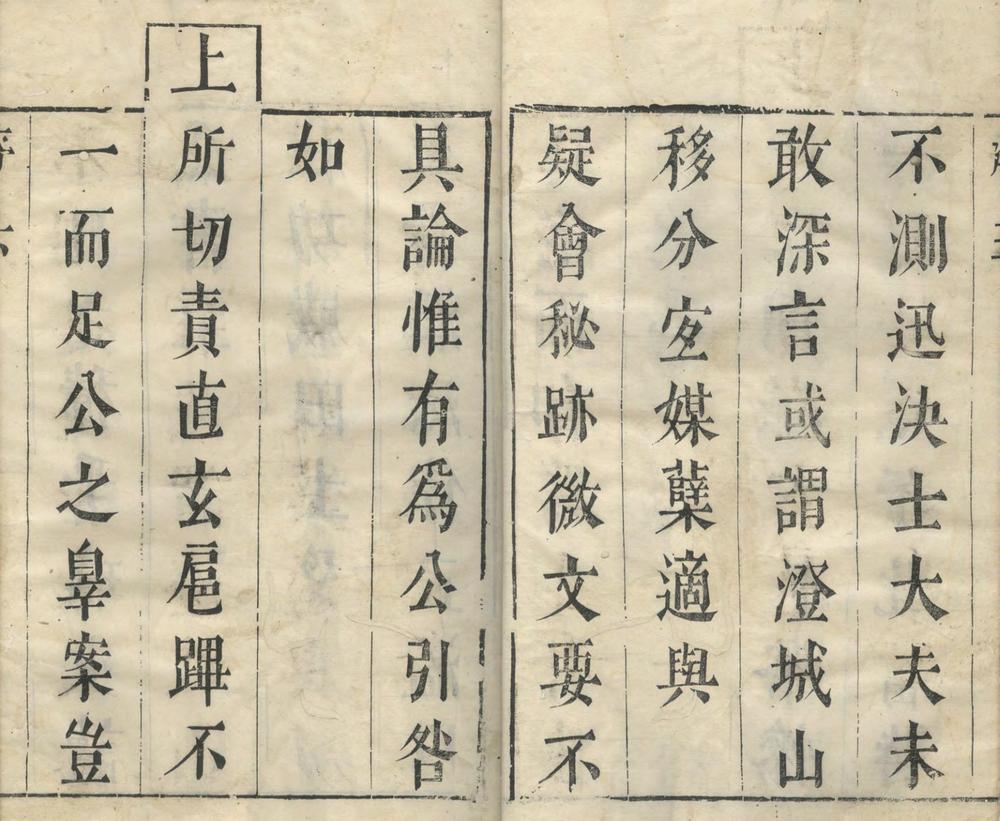 不測迅決士大夫未
敢深言或謂澄城山
移分宐媒蘖適與
疑會秘跡微文要不
具論惟有爲公引咎
如
上所切責直玄扈蹕不
一而足公之辠案豈